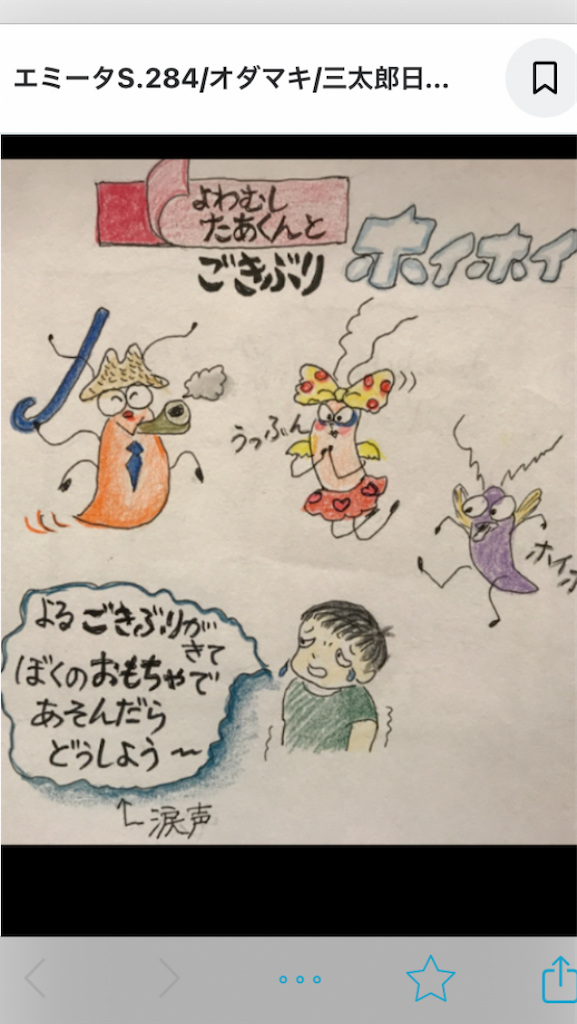 エミータS.284/オダマキ/三太郎日...
よわむし
たあくんと
ごきぶり
ホイホイ
うっふん
ホイホ
よるごきぶりが
きて
ぼくのおもちゃで
あそんだら
どうしよう〜
涙声